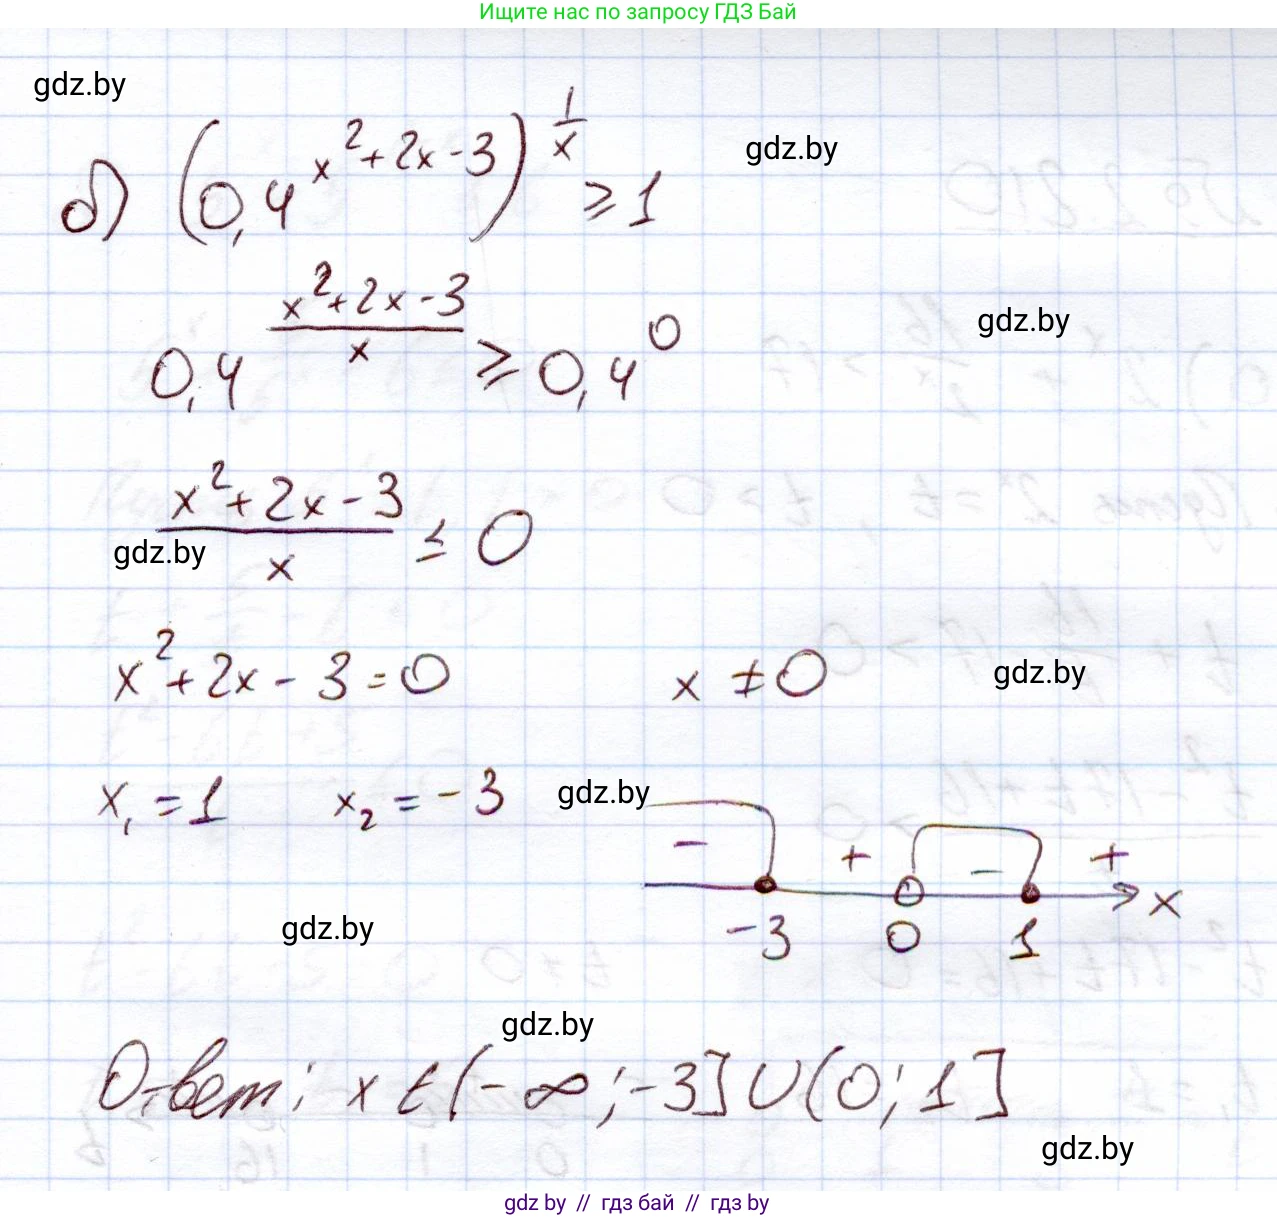 Ищите нас по запросу ГДЗ Бай
gdz.by
б) (0,4^(x²+2x-3))^(1/x) ≥ 1
gdz.by
0,4^((x²+2x-3)/x) ≥ 0,4^0
gdz.by
(x²+2x-3)/x ≤ 0
gdz.by
x²+2x-3=0 x ≠ 0
gdz.by
x₁=1 x₂=-3
gdz.by
- + - +
-3 0 1 x
gdz.by
gdz.by
Ответ: x ∈ (-∞;-3]∪(0;1]
gdz.by
gdz.by // гдз бай // гдз by